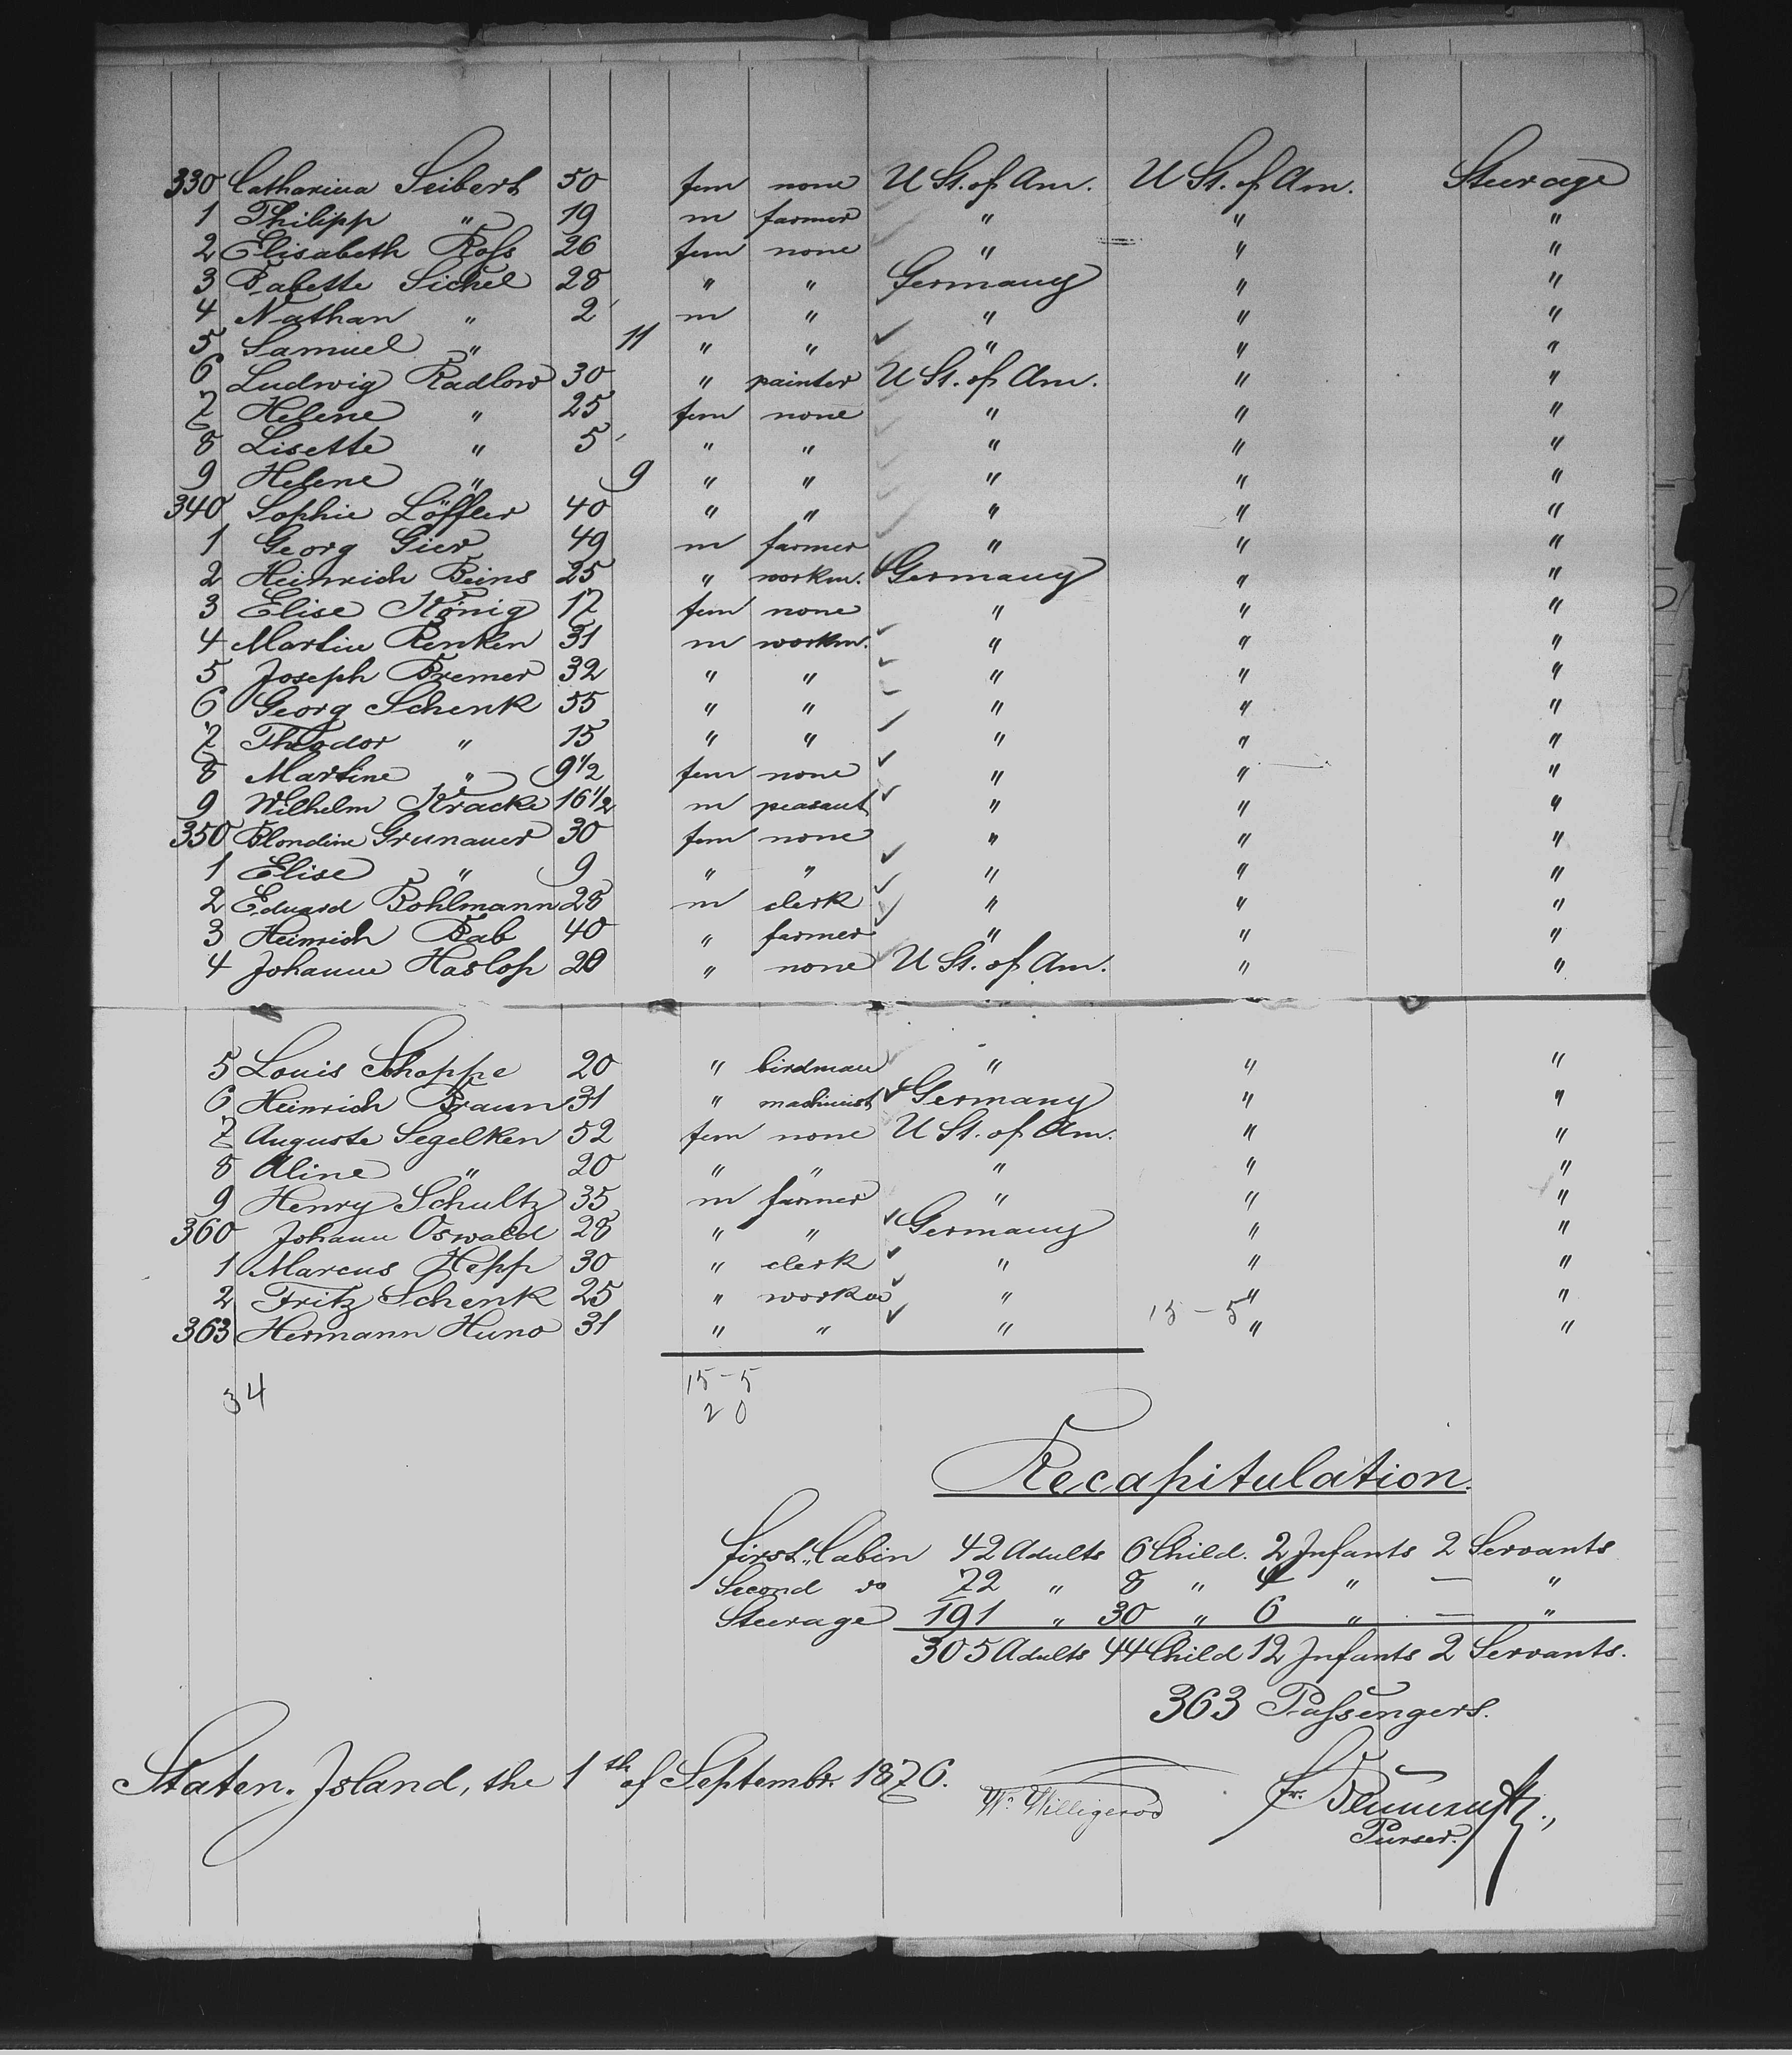 330 Catharina Seibert 50 fem none U St. of Am. U St. of Am. Steerage
1 Philipp " 19 m farmer " " "
2 Elisabeth Roſs 26 fem none " " "
3 Babette Sichel 28 " " Germany " "
4 Nathan " 2 m " " " "
5 Samuel " 11 " " " " "
6 Ludwig Radlow 30 " painter U St. of Am. " "
7 Helene " 25 fem none " " "
8 Lisette " 5 " " " " "
9 Helene " 9 " " " " "
340 Sophie Löffler 40 " " " " "
1 Georg Gier 49 m farmer " " "
2 Heinrich Beins 25 " workm. Germany " "
3 Elise König 17 fem none " " "
4 Martin Renken 31 m workm. " " "
5 Joseph Bremer 32 " " " " "
6 Georg Schenk 55 " " " " "
7 Theodor " 15 " " " " "
8 Martine " 9 1/2 fem none " " "
9 Wilhelm Kracke 16 1/2 m peasant " " "
350 Blondine Grunauer 30 fem none " " "
1 Elise " 9 " " " " "
2 Eduard Bohlmann 28 m clerk " " "
3 Heinrich Bab 40 " farmer " " "
4 Johanne Haslop 20 " none U St. of Am. " "
5 Louis Schoppe 20 " birdman " " "
6 Heinrich Braun 31 " machinist Germany " "
7 Auguste Segelken 52 fem none U St. of Am. " "
8 Aline " 20 " " " " "
9 Henry Schultz 35 m farmer " " "
360 Johann Oswald 28 " " Germany " "
1 Marcus Hepp 30 " clerk " " "
2 Fritz Schenk 25 " workm " " "
363 Hermann Huno 31 " " " 15 - 5 " "
34 15 - 5
20
Recapitulation.
First Cabin 42 Adults 6 Child. 2 Infants 2 Servants
Second do 72 " 8 " 4 " — "
Steerage 191 " 30 " 6 " — "
305 Adults 44 Child 12 Infants 2 Servants.
363 Paſsengers.
Staten. Island, the 1th of Septembr. 1876.
W. Willigerod
Fr.
Purser.